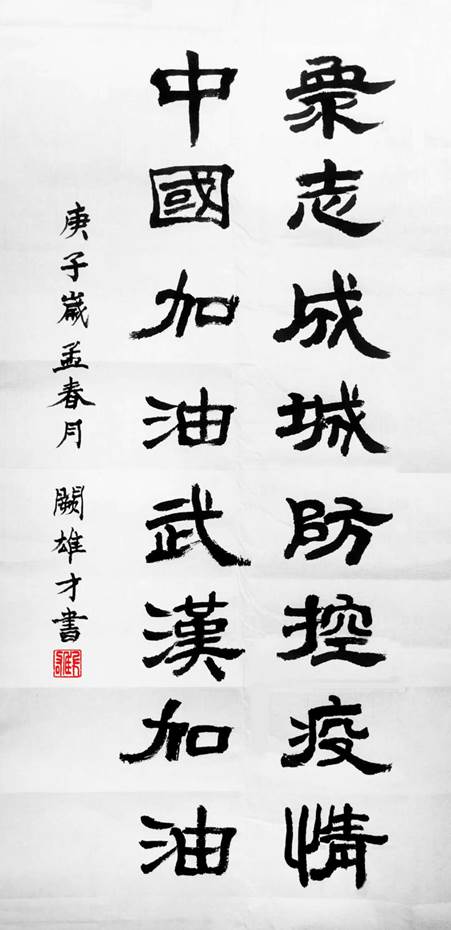 眾志成城防控疫情
中國加油武漢加油
庚子歲孟春月 闕雄才書